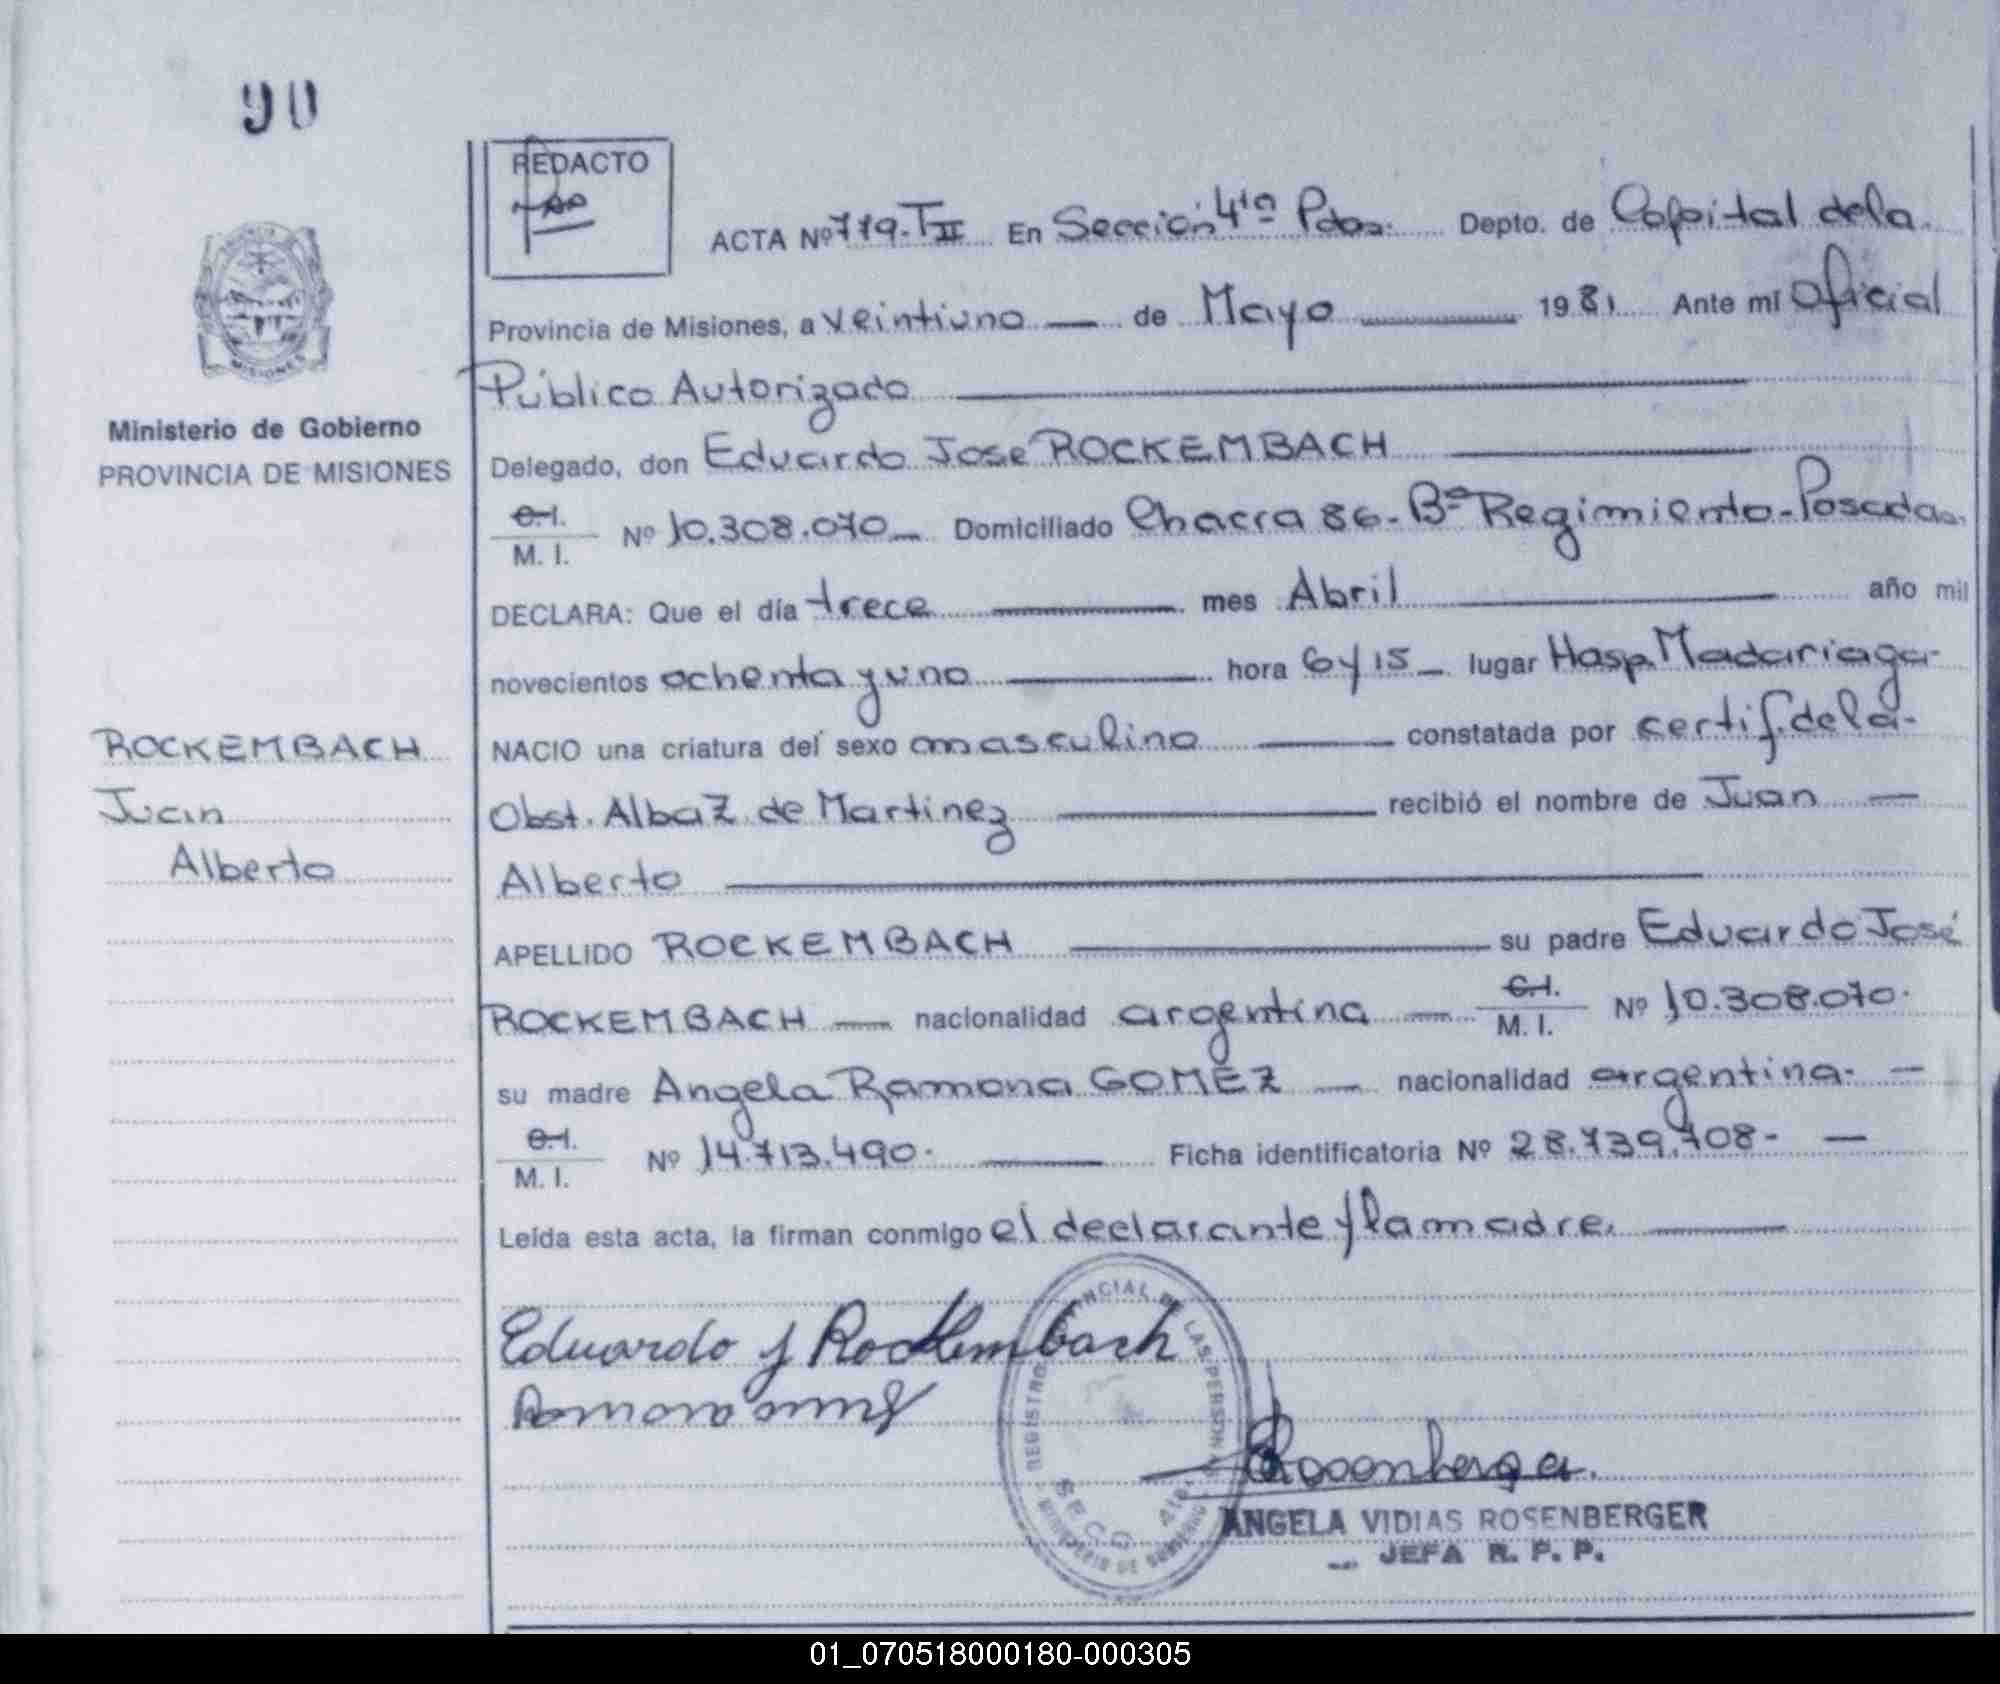 90
REDACTO
ACTA Nº 779-TII En Sección 4ta Pdas. Depto. de Capital dela
Provincia de Misiones, a veintiuno de Mayo 1981 Ante mí Oficial
Público Autorizado
Delegado, don Eduardo José ROCKEMBACH
C.I.
M. I. Nº 10.308.070 Domiciliado Chacra 86-Bº Regimiento-Posadas.
DECLARA: Que el día trece mes Abril año mil
novecientos ochenta y uno hora 6 y 15 lugar Hosp. Madariaga
NACIO una criatura del sexo masculino constatada por certif. dela
Obst. Alba Z de Martinez recibió el nombre de Juan
Alberto
APELLIDO ROCKEMBACH su padre Eduardo José
ROCKEMBACH nacionalidad argentina C.I.
M. I. Nº 10.308.070.
su madre Angela Ramona GOMEZ nacionalidad argentina.
C.I.
M. I. Nº 14.713.490. Ficha identificatoria Nº 28.739.708-
Leída esta acta, la firman conmigo el declarante y la madre.
MISIONES
Ministerio de Gobierno
PROVINCIA DE MISIONES
ROCKEMBACH
Juan
Alberto
Eduardo J Rockembach
Ramona
REGISTRO PROVINCIAL DE LAS PERSONAS
MINISTERIO DE GOBIERNO
SECC. 4ta
Rosenberger
ANGELA VIDIAS ROSENBERGER
JEFA R. P. P.
01_070518000180-000305